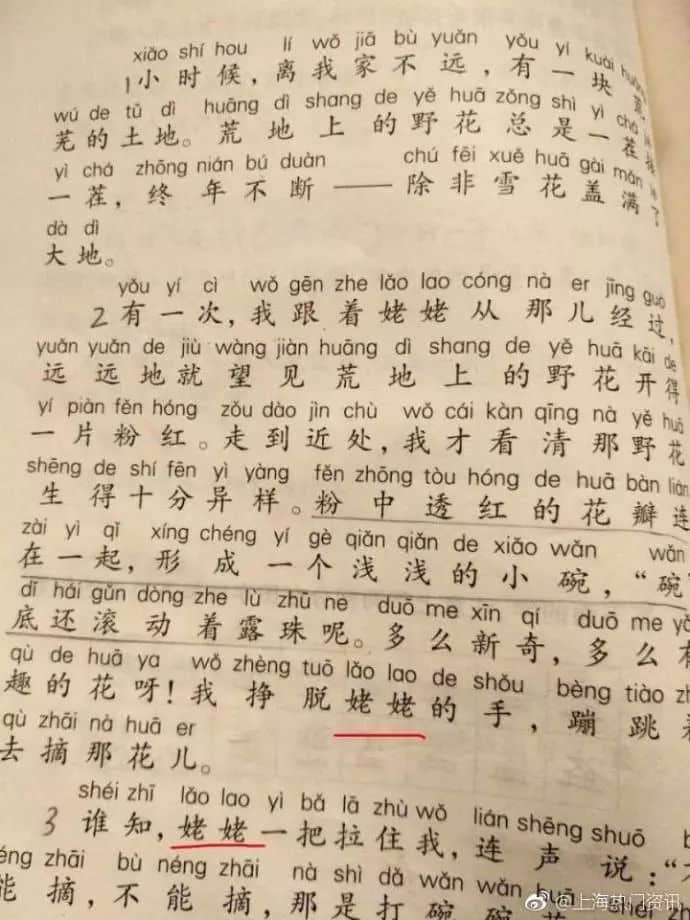 xiǎo shí hou lí wǒ jiā bù yuǎn yǒu yí kuài
1小时候，离我家不远，有一块
wú de tǔ dì huāng dì shang de yě huā zǒng shì yì chá
芜的土地。荒地上的野花总是一茬
yì chá zhōng nián bú duàn chú fēi xuě huā gài mǎn
一茬，终年不断——除非雪花盖满了
dà dì
大地。
yǒu yí cì wǒ gēn zhe lǎo lao cóng nà er jīng guò
2有一次，我跟着姥姥从那儿经过，
yuǎn yuǎn de jiù wàng jiàn huāng dì shang de yě huā kāi de
远远地就望见荒地上的野花开得
yí piàn fěn hóng zǒu dào jìn chù wǒ cái kàn qīng nà yě huā
一片粉红。走到近处，我才看清那野花
shēng de shí fēn yì yàng fěn zhōng tòu hóng de huā bàn lián
生得十分异样。粉中透红的花瓣连
zài yì qǐ xíng chéng yí gè qiǎn qiǎn de xiǎo wǎn wǎn
在一起，形成一个浅浅的小碗，“碗”
dǐ hái gǔn dòng zhe lù zhū ne duō me xīn qí duō me
底还滚动着露珠呢。多么新奇，多么有
qù de huā ya wǒ zhèng tuō lǎo lao de shǒu bèng tiào
趣的花呀！我挣脱姥姥的手，蹦跳着
qù zhāi nà huā er
去摘那花儿。
shéi zhī lǎo lao yì bǎ lā zhù wǒ lián shēng shuō
3谁知，姥姥一把拉住我，连声说：“不
néng zhāi bù néng zhāi nà shì dǎ wǎn wǎn huā
能摘，不能摘，那是打碗碗花
@上海热门资讯